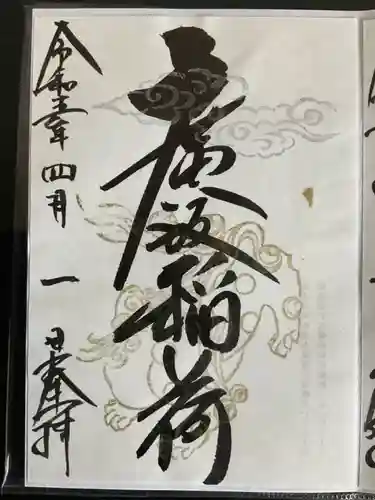 廣坂稲荷
令和五年四月一日奉拝